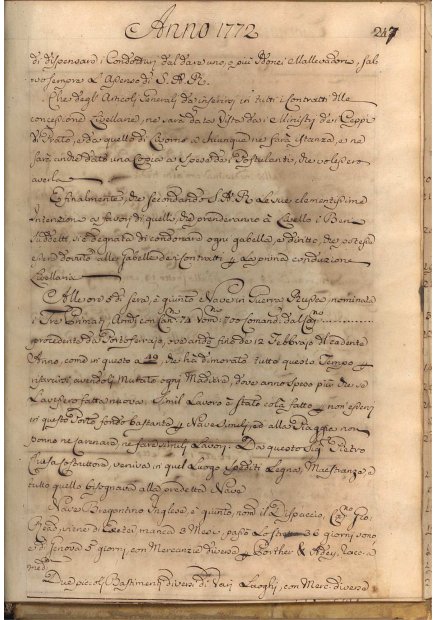 Anno 1772 247
di dispensare i Conduttori dal dare uno, o più Idonei Mallevadori, sal
vo sempre l'Assenso di S. A. R.
Che degl' Articoli Generali da inserirsi in tutti i Contratti delle
concessioni Livellarie, ne sarà data Vista da i Ministri de i Ceppi
di Prato, e da quello di Livorno a chiunque ne farà istanza, e ne
sarà anche dato una Copia a Spese de i Postulanti, che volessero
averla
E finalmente, che secondando S. A. R. le sue clementissime
intenzioni a favore di quelli, che prenderanno a Livello i Beni
suddetti si è degnata di condonare ogni gabella, e diritto, che potesse
esser dovuto alle Gabelle de i Contratti p la prima conduzione
Livellaria
Alle ore 5 di sera, è giunto Nave in Guerra Russa nominata
i Tre Primati, And con Can. 74 Uom. 700 Comand. dal Cap.no
procedente da Portoferrajo, ove andò fino de 12 Febbrajo del cadente
Anno, come in questo a 49, che hà dimorato tutto questo Tempo p
risarcirsi avendoli Mutato ogni Madiera, dove anno speso più che se
l'avessero fatta nuova. Simil Lavoro è stato colà fatto p non esservi
in questo Porto fondo bastante p Nave simile, ed alla Spiaggia non
ponno ne carenare, ne fare simili Lavori. Da questo Sig.r Pietro
Costruttore, veniva in quel Luogo spediti Legna, Maestranza, e
tutto quello bisognava alla predetta Nave
Nave Brigantino Inglese è giunto, nom. il Dispaccio, Cap.no Gio.
Read, viene di Exeter manca 3 Mesi, passò lo Stretto 36 giorni sono
e di Genova 5 giorni, con Mercanzia diversa p Porther & Adey, Raccia
med.mo
Due piccoli Bastimenti diversi di Vari Luoghi, con Merc. diversa